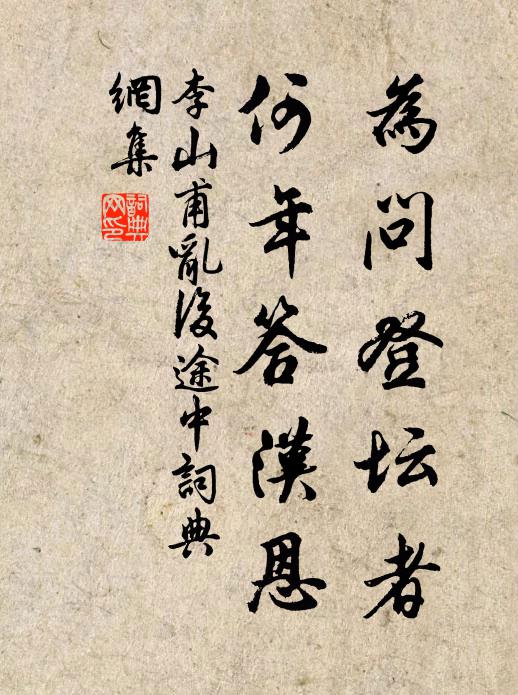 為問登坛者
何年答漢恩
李山甫亂後途中詞典
網集
詞典
网印